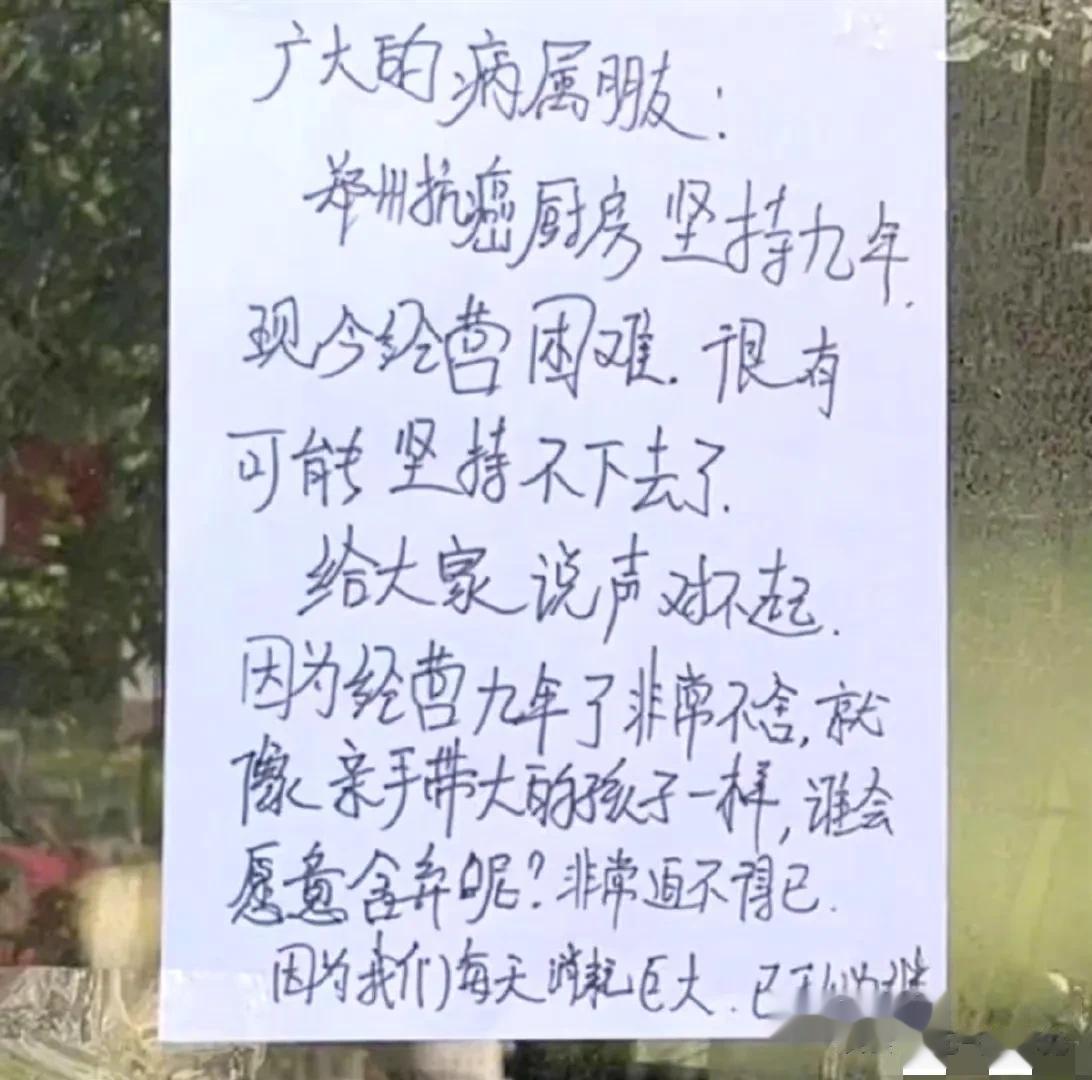 广大的病属朋友:
郑州抗癌厨房坚持九年.
现今经营困难.很有
可能坚持不下去了.
给大家说声对不起.
因为经营九年了非常不舍,就
像亲手带大的孩子一样,谁会
愿意舍弃呢?非常迫不得已.
因为我们每天消耗巨大.已